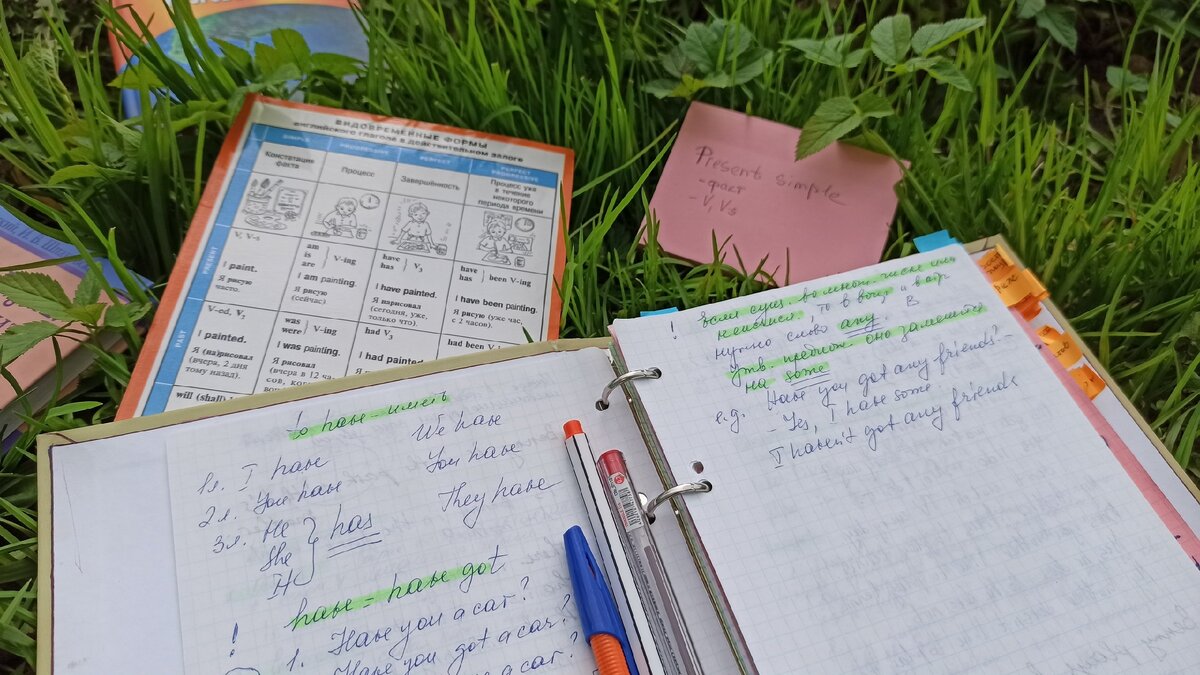 ВИДОВРЕМЕННЫЕ ФОРМЫ
английского глагола в действительном залоге
SIMPLE PROGRESSIVE PERFECT PERFECT PROGRESSIVE
Констатация факта
Процесс
Завершённость
Процесс уже в течение некоторого периода времени
PRESENT
V, V-s
I paint.
Я рисую часто.
am is are } V-ing
I am painting.
Я рисую (сейчас)
have has } V₃
I have painted.
Я нарисовал (сегодня, уже, только что).
have has } been V-ing
I have been painting.
Я рисую (уже час, с 2 часов).
PAST
V-ed, V₂
I painted.
Я (на)рисовал (вчера, 2 дня тому назад).
was were } V-ing
I was painting.
Я рисовал (вчера в 12 ча-
had V₃
I had painted.
had been V-
will (shall)
Present simple
- факт
- V, Vs
! Если сущ. во множ. числе или
неисчисл. то в вопр. и в отр.
нужно слово any. В
утв. предлож. оно заменяется
на some
e.g. Have you got any friends? -
- Yes, I have some.
I haven't got any friends
to have - иметь
1л. I have We have
2л. You have You have
3л. He They have
She } has
It
have = have got
! 1. Have you a car?
Have you got a car?
a car?